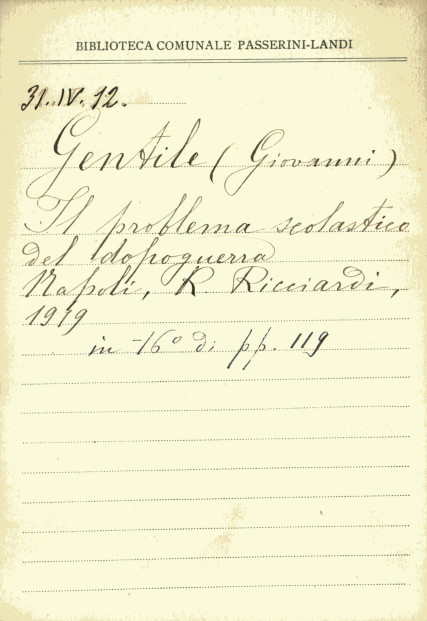 BIBLIOTECA COMUNALE PASSERINI-LANDI
31.IV.12.
Gentile (Giovanni)
Il problema scolastico
del dopoguerra
Napoli, R Ricciardi,
1919
in -16° di pp. 119